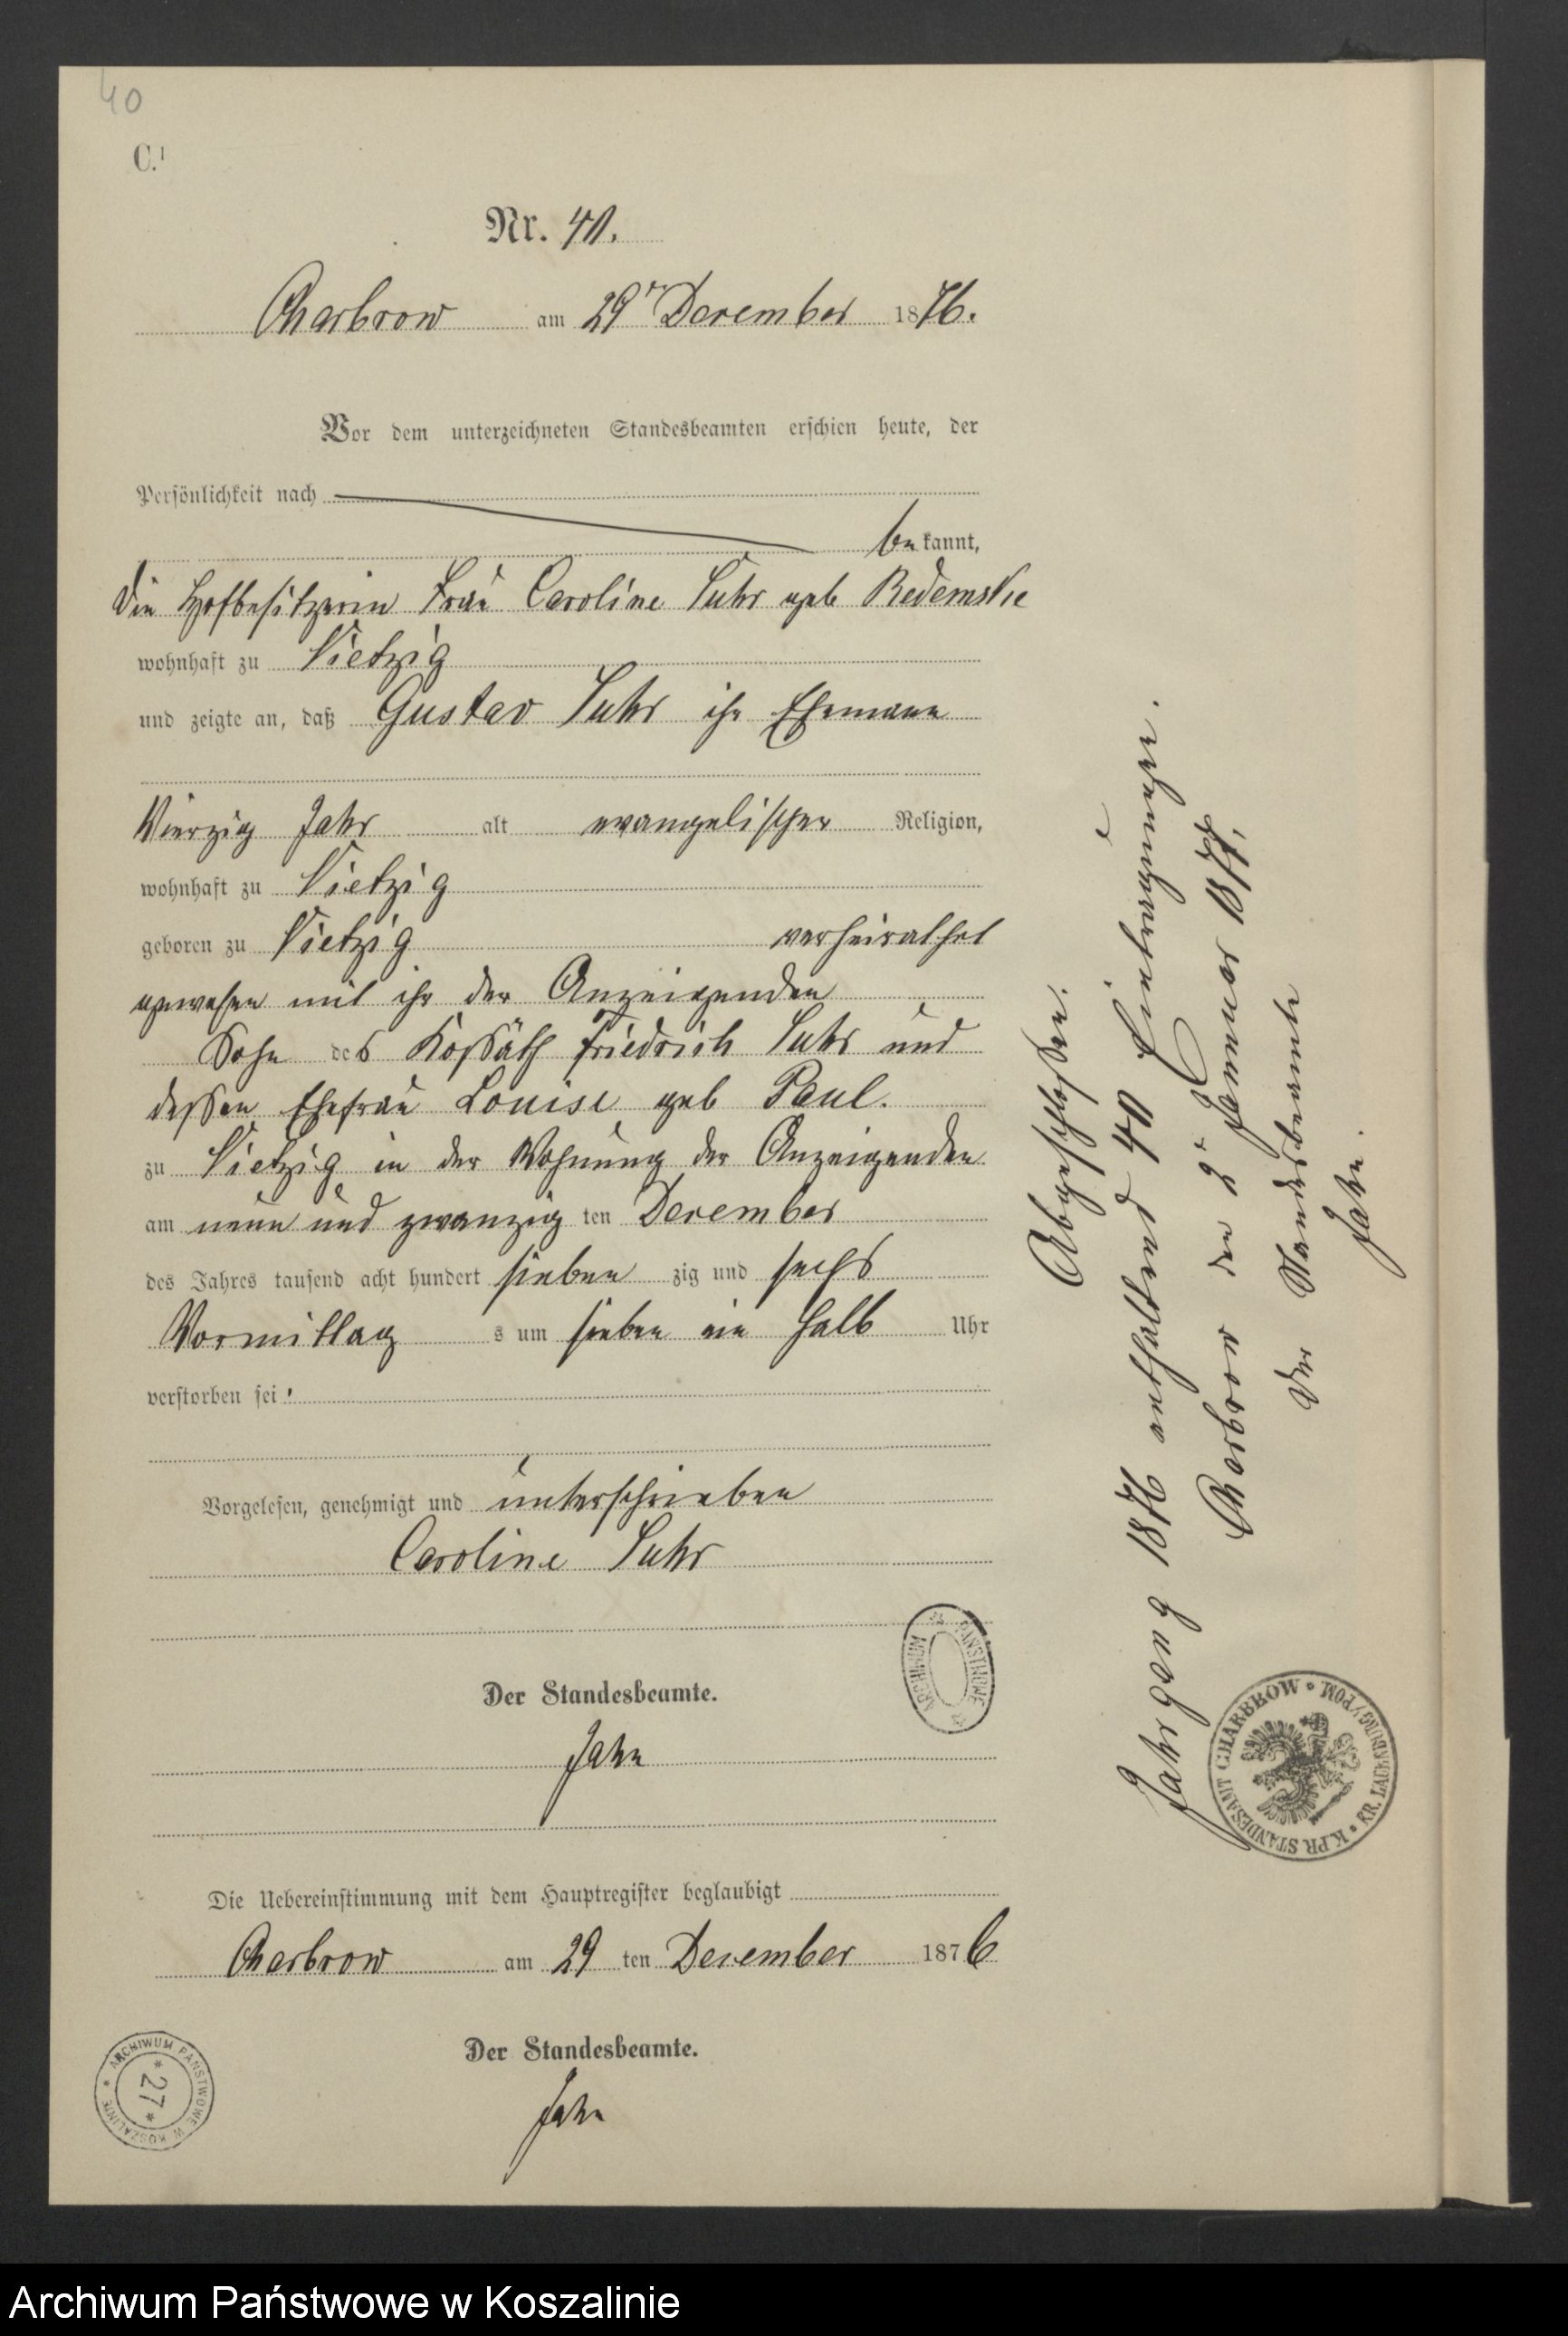 40
C.¹
Nr. 40.
Charbrow am 29ⁿ December 1876.
Vor dem unterzeichneten Standesbeamten erschien heute, der
Persönlichkeit nach
bekannt,
die Hofbesitzerin Frau Caroline Suhr geb
wohnhaft zu Vietzig
und zeigte an, daß Gustav Suhr ihr Ehemann
Vierzig Jahr alt evangelischer Religion,
wohnhaft zu Vietzig
geboren zu Vietzig verheirathet
gewesen mit ihr der Anzeigenden
Sohn des Koßäth Friedrich Suhr und
dessen Ehefrau Louise geb Paul.
zu Vietzig in der Wohnung der Anzeigenden
am neun und zwanzig ten December
des Jahres tausend acht hundert sieben zig und sechs
Vormittag s um sieben ein halb Uhr
verstorben sei.
Vorgelesen, genehmigt und unterschrieben
Caroline Suhr
Der Standesbeamte.
Jahn
Die Uebereinstimmung mit dem Hauptregister beglaubigt
Charbrow am 29 ten December 1876
Der Standesbeamte.
Jahn
Abgeschlossen.
Jahrgang 1876 enthaltend 40 Eintragungen.
Charbrow den 2ⁿ Januar 1877.
Der Standesbeamte
Jahn.
K. PR. STANDESAMT CHARBROW • KR. LAUENBURG / POM.
ARCHIWUM PAŃSTWOWE
ARCHIWUM PAŃSTWOWE W KOSZALINIE
* 27 *
Archiwum Państwowe w Koszalinie